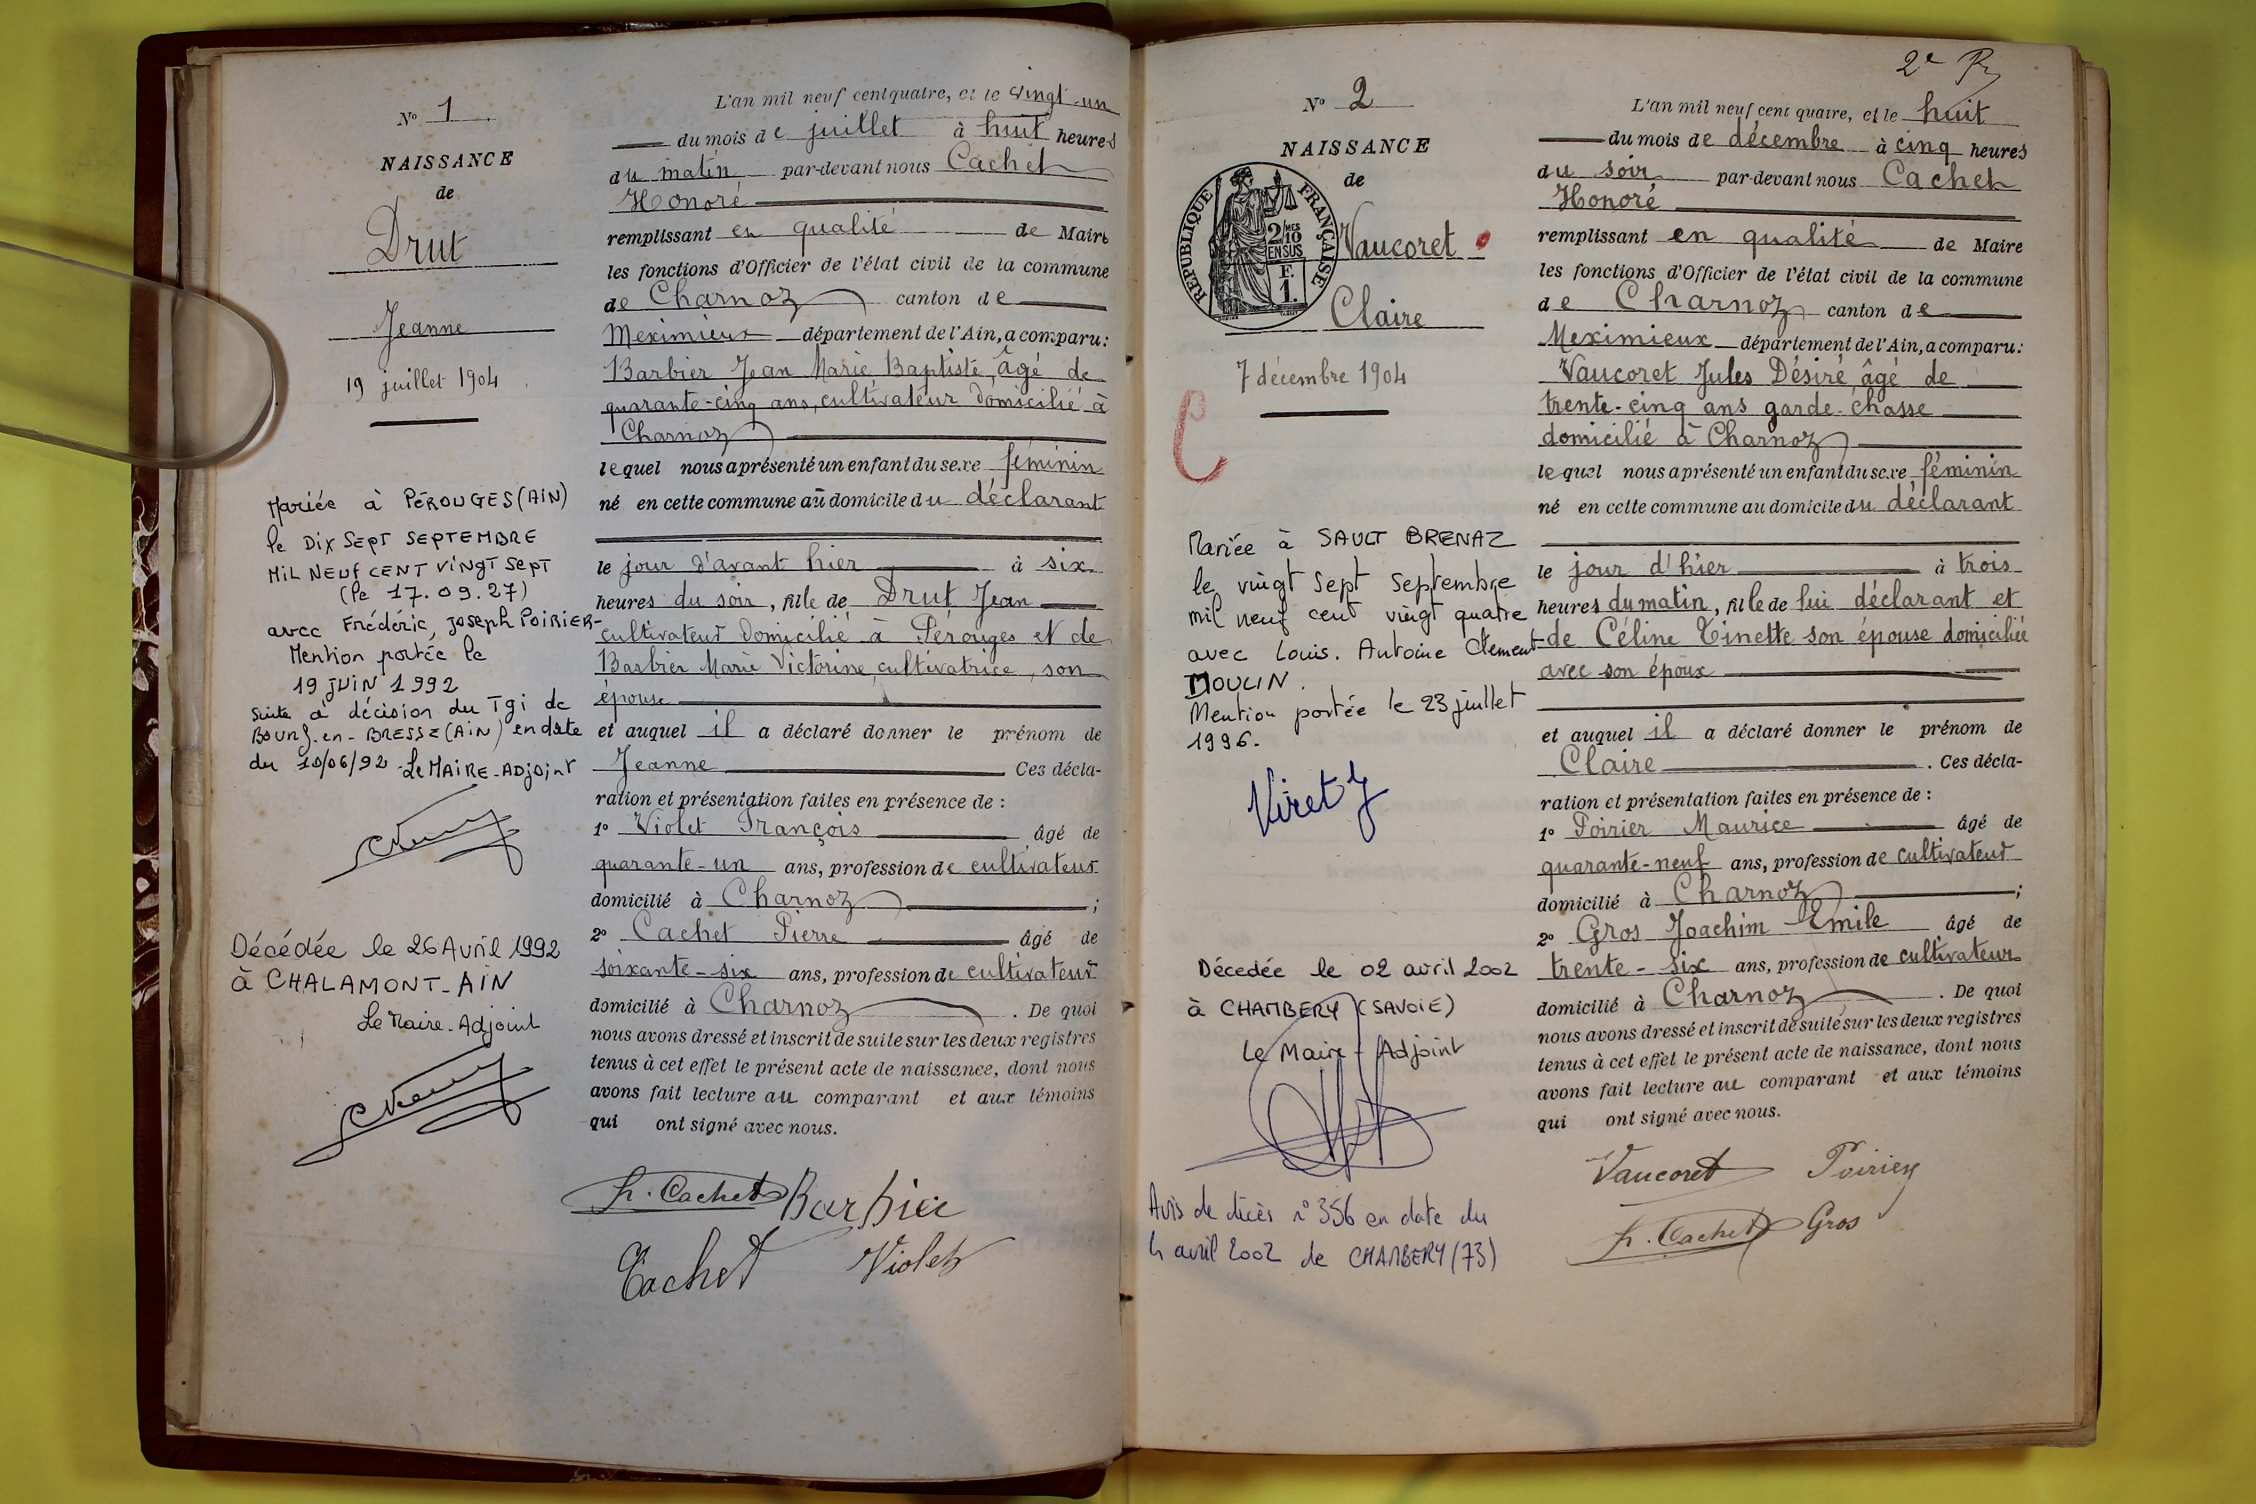 N° 1
NAISSANCE
de
Drut
Jeanne
19 juillet 1904
Mariée à PÉROUGES (AIN)
le DIX SEPT SEPTEMBRE
MIL NEUF CENT VINGT SEPT
(le 17.09.27)
avec Frédéric, Joseph POIRIER-
Mention portée le
19 JUIN 1992
suite à décision du Tgi de
BOURG-en-BRESSE (AIN) en date
du 10/06/92. Le MAIRE-ADJOINT
Décédée le 26 Avril 1992
à CHALAMONT-AIN
Le Maire-Adjoint
L'an mil neuf cent quatre, et le vingt-un
du mois de juillet à huit heures
du matin par-devant nous Cachet
Honoré
remplissant en qualité de Maire
les fonctions d'Officier de l'état civil de la commune
de Charnoz canton de
Meximieux département de l'Ain, a comparu:
Barbier Jean Marie Baptiste, âgé de
quarante-cinq ans, cultivateur domicilié à
Charnoz
lequel nous a présenté un enfant du sexe féminin
né en cette commune au domicile du déclarant
le jour d'avant hier à six
heures du soir, fille de Drut Jean
cultivateur domicilié à Pérouges et de
Barbier Marie Victorine, cultivatrice, son
épouse
et auquel il a déclaré donner le prénom de
Jeanne Ces décla-
ration et présentation faites en présence de :
1° Violet François âgé de
quarante-un ans, profession de cultivateur
domicilié à Charnoz ;
2° Cachet Pierre âgé de
soixante-six ans, profession de cultivateur
domicilié à Charnoz . De quoi
nous avons dressé et inscrit de suite sur les deux registres
tenus à cet effet le présent acte de naissance, dont nous
avons fait lecture au comparant et aux témoins
qui ont signé avec nous.
h. Cachet Barbier
Cachet Violet
2e
N° 2
NAISSANCE
de
RÉPUBLIQUE FRANÇAISE
2/10 MES
EN SUS
F.
1.
Vaucoret
Claire
7 décembre 1904
C
Mariée à SAULT BRENAZ
le vingt sept septembre
mil neuf cent vingt quatre
avec Louis. Antoine Clement
MOULIN.
Mention portée le 23 juillet
1996.
Viret J
Décedée le 02 avril 2002
à CHAMBERY (SAVOIE)
Le Maire-Adjoint
Avis de décès n° 356 en date du
4 avril 2002 de CHAMBERY (73)
L'an mil neuf cent quatre, et le huit
du mois de décembre à cinq heures
du soir par-devant nous Cachet
Honoré
remplissant en qualité de Maire
les fonctions d'Officier de l'état civil de la commune
de Charnoz canton de
Meximieux département de l'Ain, a comparu:
Vaucoret Jules Désiré, âgé de
trente-cinq ans garde-chasse
domicilié à Charnoz
lequel nous a présenté un enfant du sexe féminin
né en cette commune au domicile du déclarant
le jour d'hier à trois
heures du matin, fille de lui déclarant et
de Céline Tinette son épouse domiciliée
avec son époux
et auquel il a déclaré donner le prénom de
Claire . Ces décla-
ration et présentation faites en présence de :
1° Poirier Maurice âgé de
quarante-neuf ans, profession de cultivateur
domicilié à Charnoz ;
2° Gros Joachim Emile âgé de
trente-six ans, profession de cultivateur
domicilié à Charnoz . De quoi
nous avons dressé et inscrit de suite sur les deux registres
tenus à cet effet le présent acte de naissance, dont nous
avons fait lecture au comparant et aux témoins
qui ont signé avec nous.
Vaucoret Poirier
h. Cachet Gros